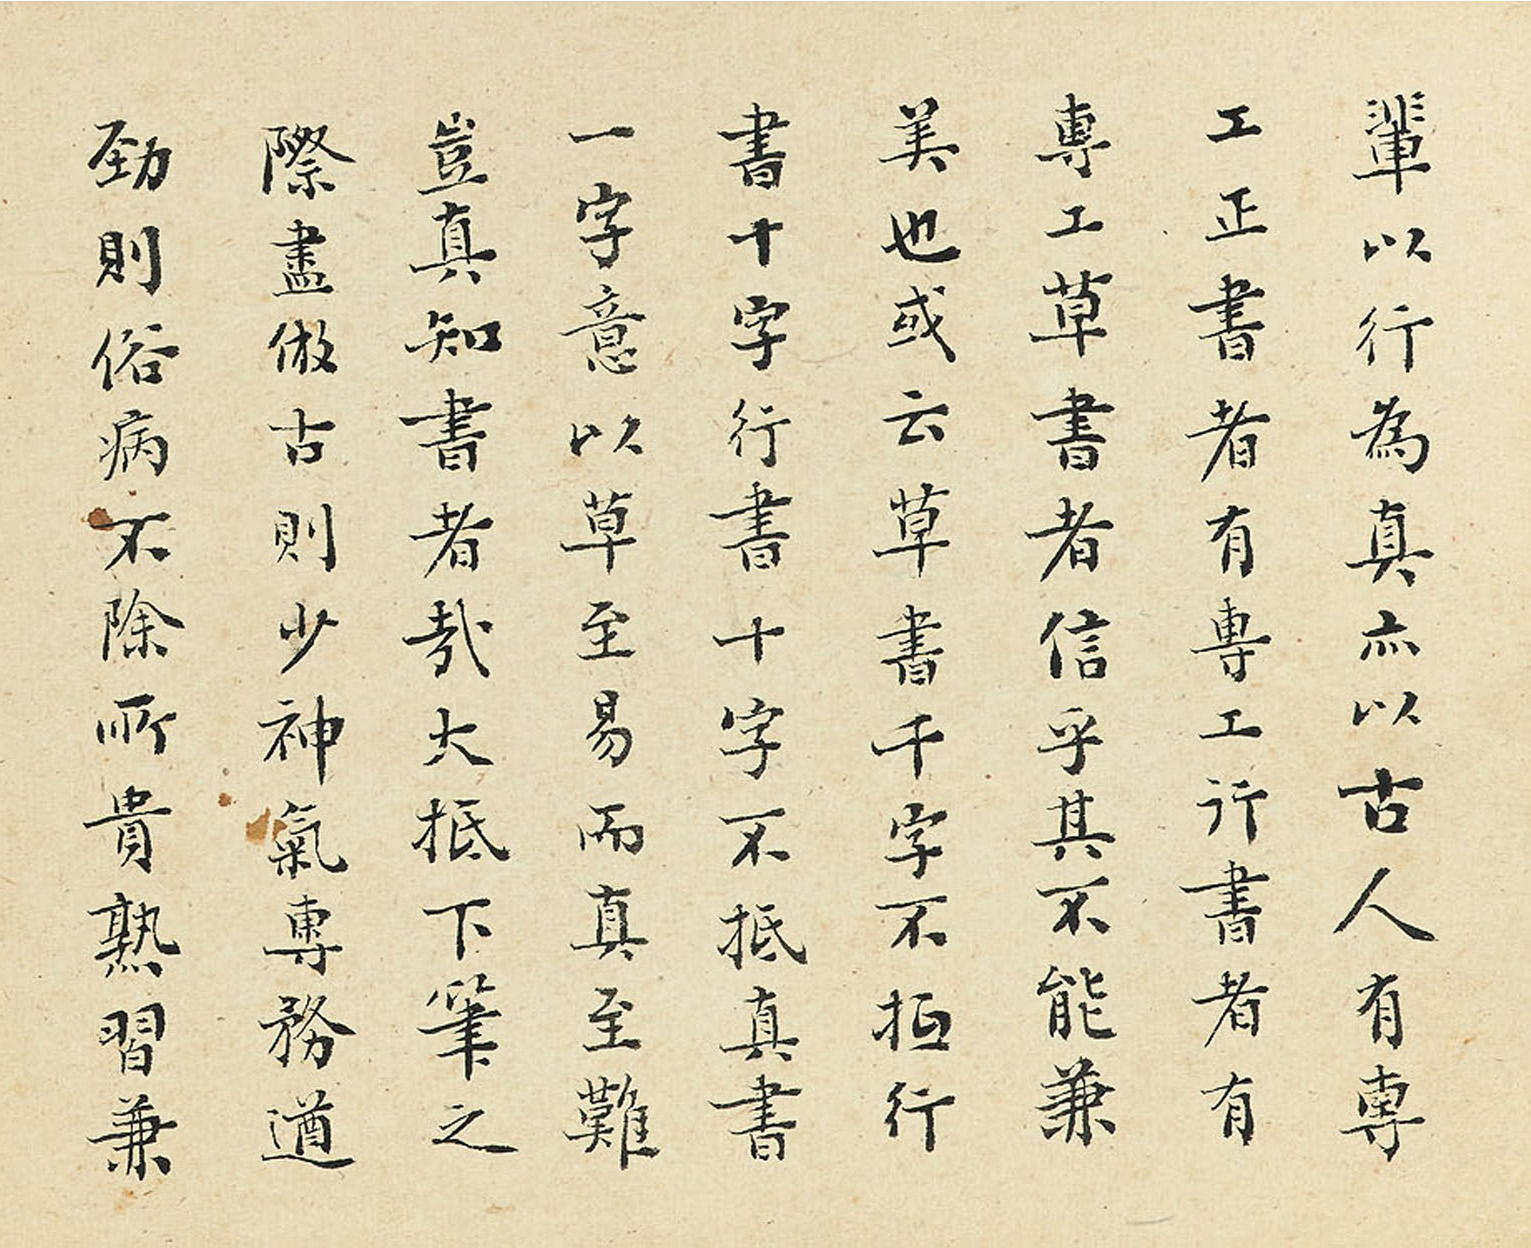 輩以行為真亦以古人有專
工正書者有專工行書者有
專工草書者信乎其不能兼
美也或云草書千字不抵行
書十字行書十字不抵真書
一字意以草至易而真至難
豈真知書者哉大抵下筆之
際盡倣古則少神氣專務遒
勁則俗病不除所貴熟習兼